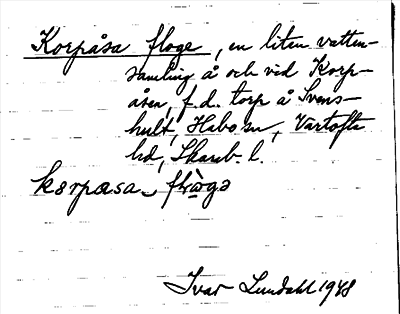 Korpåsa floge, en liten vatten-
samling å och vid Korp-
åsen, f.d. torp å Svens-
hult, Habo sn, Vartofta
hd, Skarab. l.
korpasa
Ivar Lundahl 1948